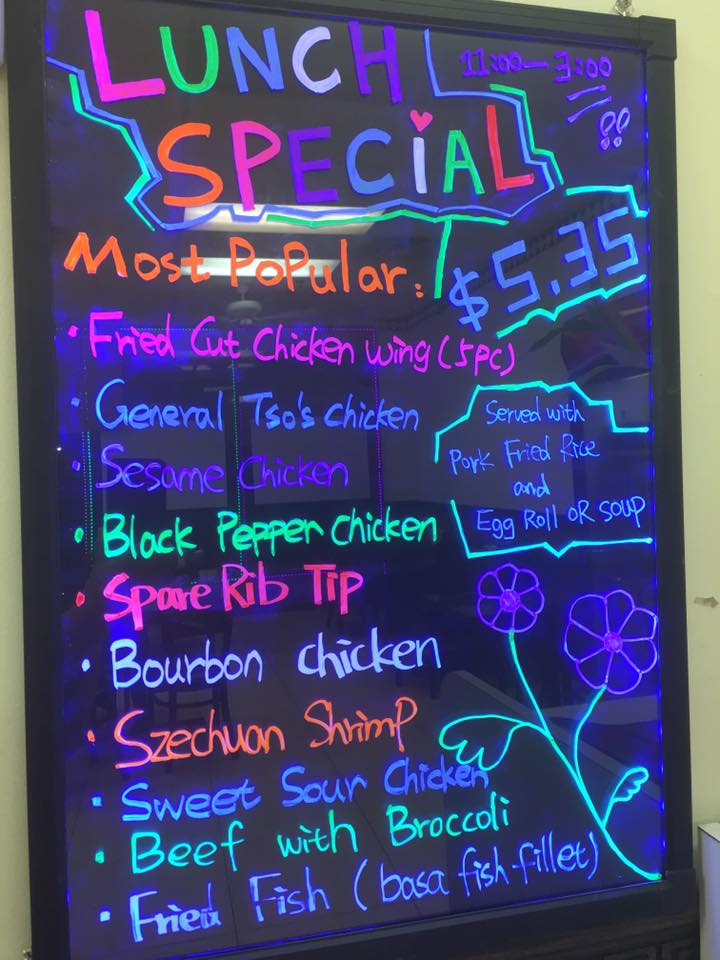 LUNCH
11:00—3:00
SPECIAL !!
Most Popular:
$5.35
• Fried Cut Chicken Wing (5pc)
• General Tso's chicken
• Sesame Chicken
• Black Pepper chicken
Served with
Pork Fried Rice
and
Egg Roll OR SOUP
• Spare Rib Tip
• Bourbon chicken
• Szechuan Shrimp
• Sweet Sour Chicken
• Beef with Broccoli
• Fried Fish (basa fish fillet)